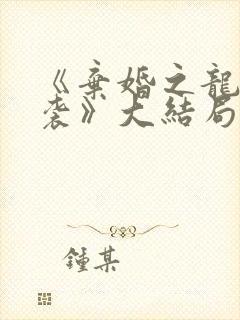 《棄婚之龍
袭》大結局
鍾某